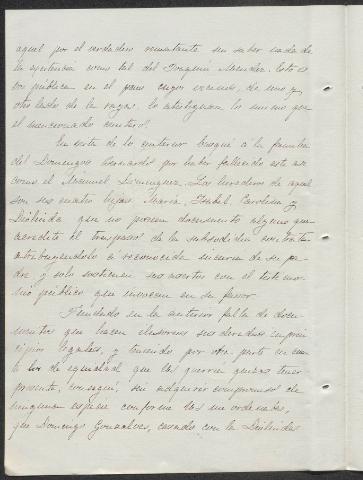 aquel por el verdadero rematante sin saber nada de
la existencia como tal del Joaquin Mendez. Esto es
voz pública en el pais cuyos vecinos, de uno y
otro lado de la raya, lo atestiguan lo mismo que
el mencionado
En vista de lo anterior busqué a la familia
del Domingos Bernardo por haber fallecido este asi
como el Manuel Dominguez. Los herederos de aquel
son sus cuatro hijas Maria, Isabel, Carolina y
que no poseen documento alguno que
acredite el traspaso de la subsodicha contrata
atribuyendolo a reconocida incuria de su pa-
dre y solo sostienen sus asertos con el testimo-
nio público que invocan en su favor.
Fundado en la anterior falta de docu-
mentos que hacen ilusorios sus derechos en prin-
cipios legales, y teniendo por otra parte en cuen-
ta de igualdad que los querrá quizas tener
presente, consegui, sin adquirir compromiso de
ninguna especie conforme las mis ordenades,
que Domingo Gonsalves, casado con la